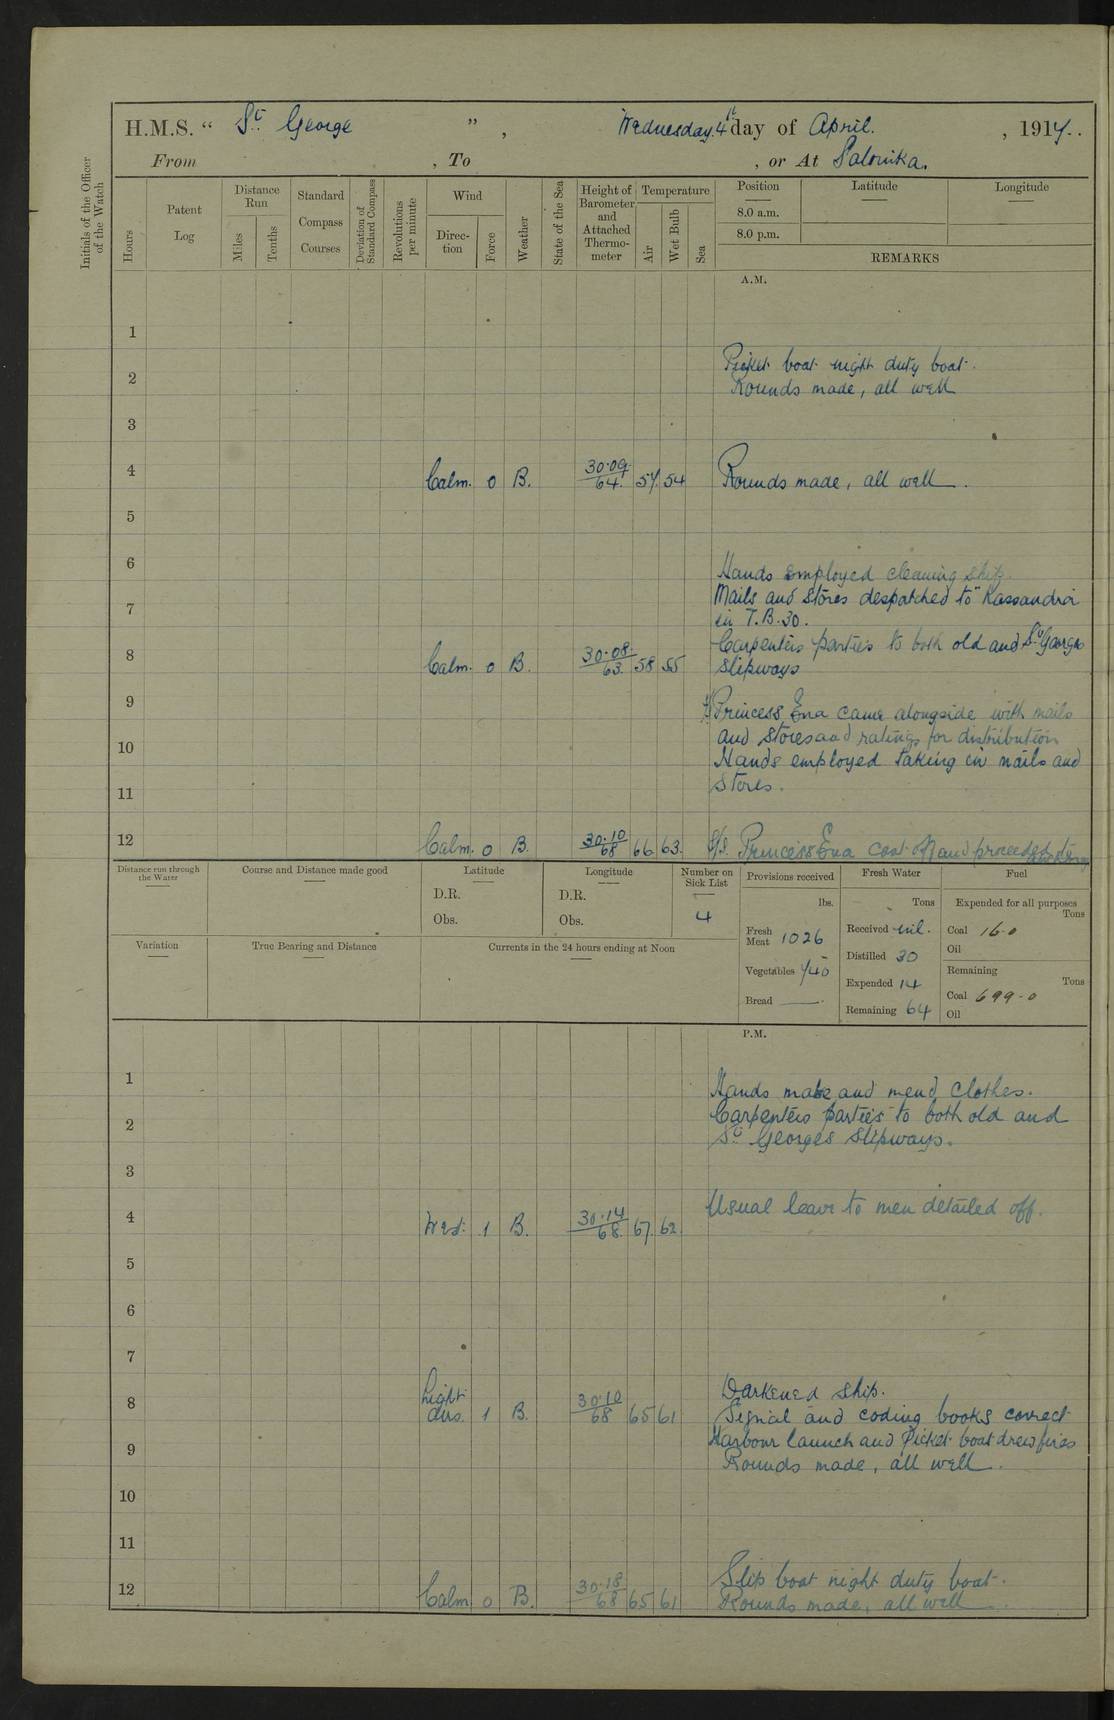 H.M.S. " St. George ", Wednesday. 4th day of April. , 1917.
From , To , or At Salonika.
Initials of the Officer of the Watch
Hours
Patent Log
Distance Run
Miles
Tenths
Standard Compass Courses
Deviation of Standard Compass
Revolutions per minute
Wind
Direction
Force
Weather
State of the Sea
Height of Barometer and Attached Thermometer
Temperature
Air
Wet Bulb
Sea
Position
Latitude
Longitude
8.0 a.m.
8.0 p.m.
REMARKS
A.M.
1
Picket boat night duty boat.
2
Rounds made, all well
3
4 Calm. 0 B. 30.09/64. 57. 54 Rounds made, all well.
5
6
Hands employed cleaning ship.
7 Mails and Stores despatched to "Kassandra
in T.B. 30.
Carpenters parties to both old and St Georges
8 Calm. 0 B. 30.08./63. 58 55 slipways
9 Princess Ena came alongside with mails
and stores and ratings for distribution
10 Hands employed taking in mails and
11 Stores.
12 Calm. 0 B. 30.10/68 66 63. S/S. Princess Ena cast off and proceeded to
Distance run through the Water
Course and Distance made good
Latitude
D.R.
Obs.
Longitude
D.R.
Obs.
Number on Sick List
4
Provisions received
lbs.
Fresh Meat 1026
Vegetables 740
Bread —
Fresh Water
Tons
Received nil.
Distilled 30
Expended 14
Remaining 64
Fuel
Expended for all purposes
Tons
Coal 16.0
Oil
Remaining
Tons
Coal 699.0
Oil
Variation
True Bearing and Distance
Currents in the 24 hours ending at Noon
P.M.
1 Hands make and mend clothes.
2 Carpenters parties to both old and
St Georges slipways.
3
4 West. 1 B. 30.14/68. 67. 62. Usual leave to men detailed off.
5
6
7
Darkened ship.
8 Light airs. 1 B. 30.10/68 65 61 Signal and coding books correct
9 Harbour launch and Picket boat drew fires
Rounds made, all well.
10
11
Slip boat night duty boat.
12 Calm 0 B. 30.18/68 65 61 Rounds made, all well